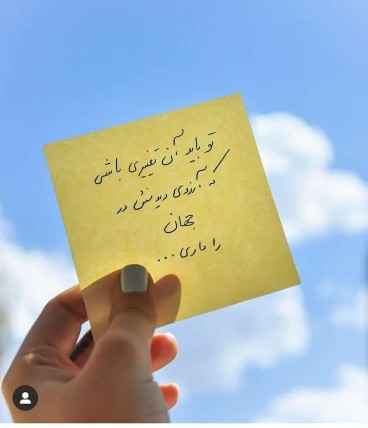 تو باید آن تغییری باشی
که آرزوی دیدنش در
جهان
را داری ...